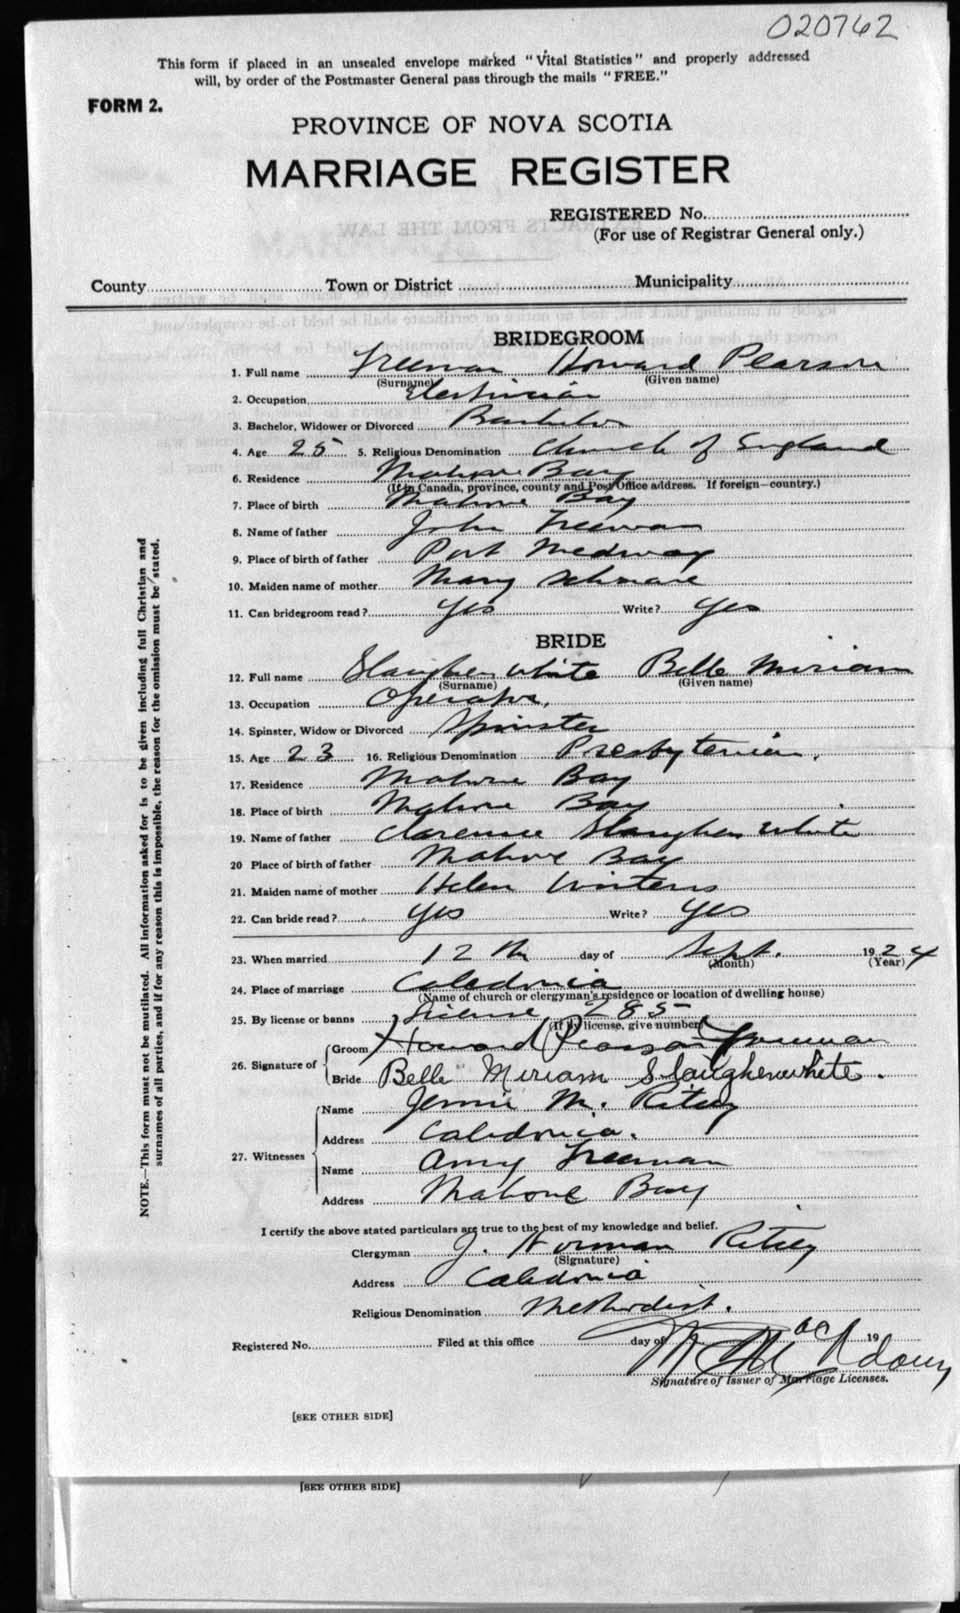 020762
This form if placed in an unsealed envelope marked "Vital Statistics" and properly addressed
will, by order of the Postmaster General pass through the mails "FREE."
FORM 2.
PROVINCE OF NOVA SCOTIA
MARRIAGE REGISTER
REGISTERED No.
(For use of Registrar General only.)
County Town or District Municipality
BRIDEGROOM
1. Full name Freeman Howard Pearson
(Surname) (Given name)
2. Occupation Electrician
3. Bachelor, Widower or Divorced Bachelor
4. Age 25 5. Religious Denomination Church of England
6. Residence Mahone Bay
(If in Canada, province, county and Post Office address. If foreign—country.)
7. Place of birth Mahone Bay
8. Name of father John Freeman
9. Place of birth of father Port Medway
10. Maiden name of mother Mary
11. Can bridegroom read? Yes Write? Yes
BRIDE
12. Full name Slaughenwhite Belle Miriam
(Surname) (Given name)
13. Occupation Operator.
14. Spinster, Widow or Divorced Spinster
15. Age 23 16. Religious Denomination Presbyterian.
17. Residence Mahone Bay
18. Place of birth Mahone Bay
19. Name of father Clarence Slaughenwhite
20 Place of birth of father Mahone Bay
21. Maiden name of mother Helen Winters
22. Can bride read? Yes Write? Yes
23. When married 12th day of Sept. 1924
(Month) (Year)
24. Place of marriage Caledonia
(Name of church or clergyman's residence or location of dwelling house)
25. By license or banns License 285
(If by license, give number)
26. Signature of
Groom Howard Pearson Freeman
Bride Belle Miriam Slaughenwhite.
27. Witnesses
Name Jennie M. Ritcey
Address Caledonia.
Name Amy Freeman
Address Mahone Bay
I certify the above stated particulars are true to the best of my knowledge and belief.
Clergyman J. Norman Ritcey
(Signature)
Address Caledonia
Religious Denomination Methodist.
Registered No. Filed at this office day of 19
Signature of Issuer of Marriage Licenses.
[SEE OTHER SIDE]
[SEE OTHER SIDE]
NOTE.—This form must not be mutilated. All information asked for is to be given including full Christian and
surnames of all parties, and if for any reason this is impossible, the reason for the omission must be stated.